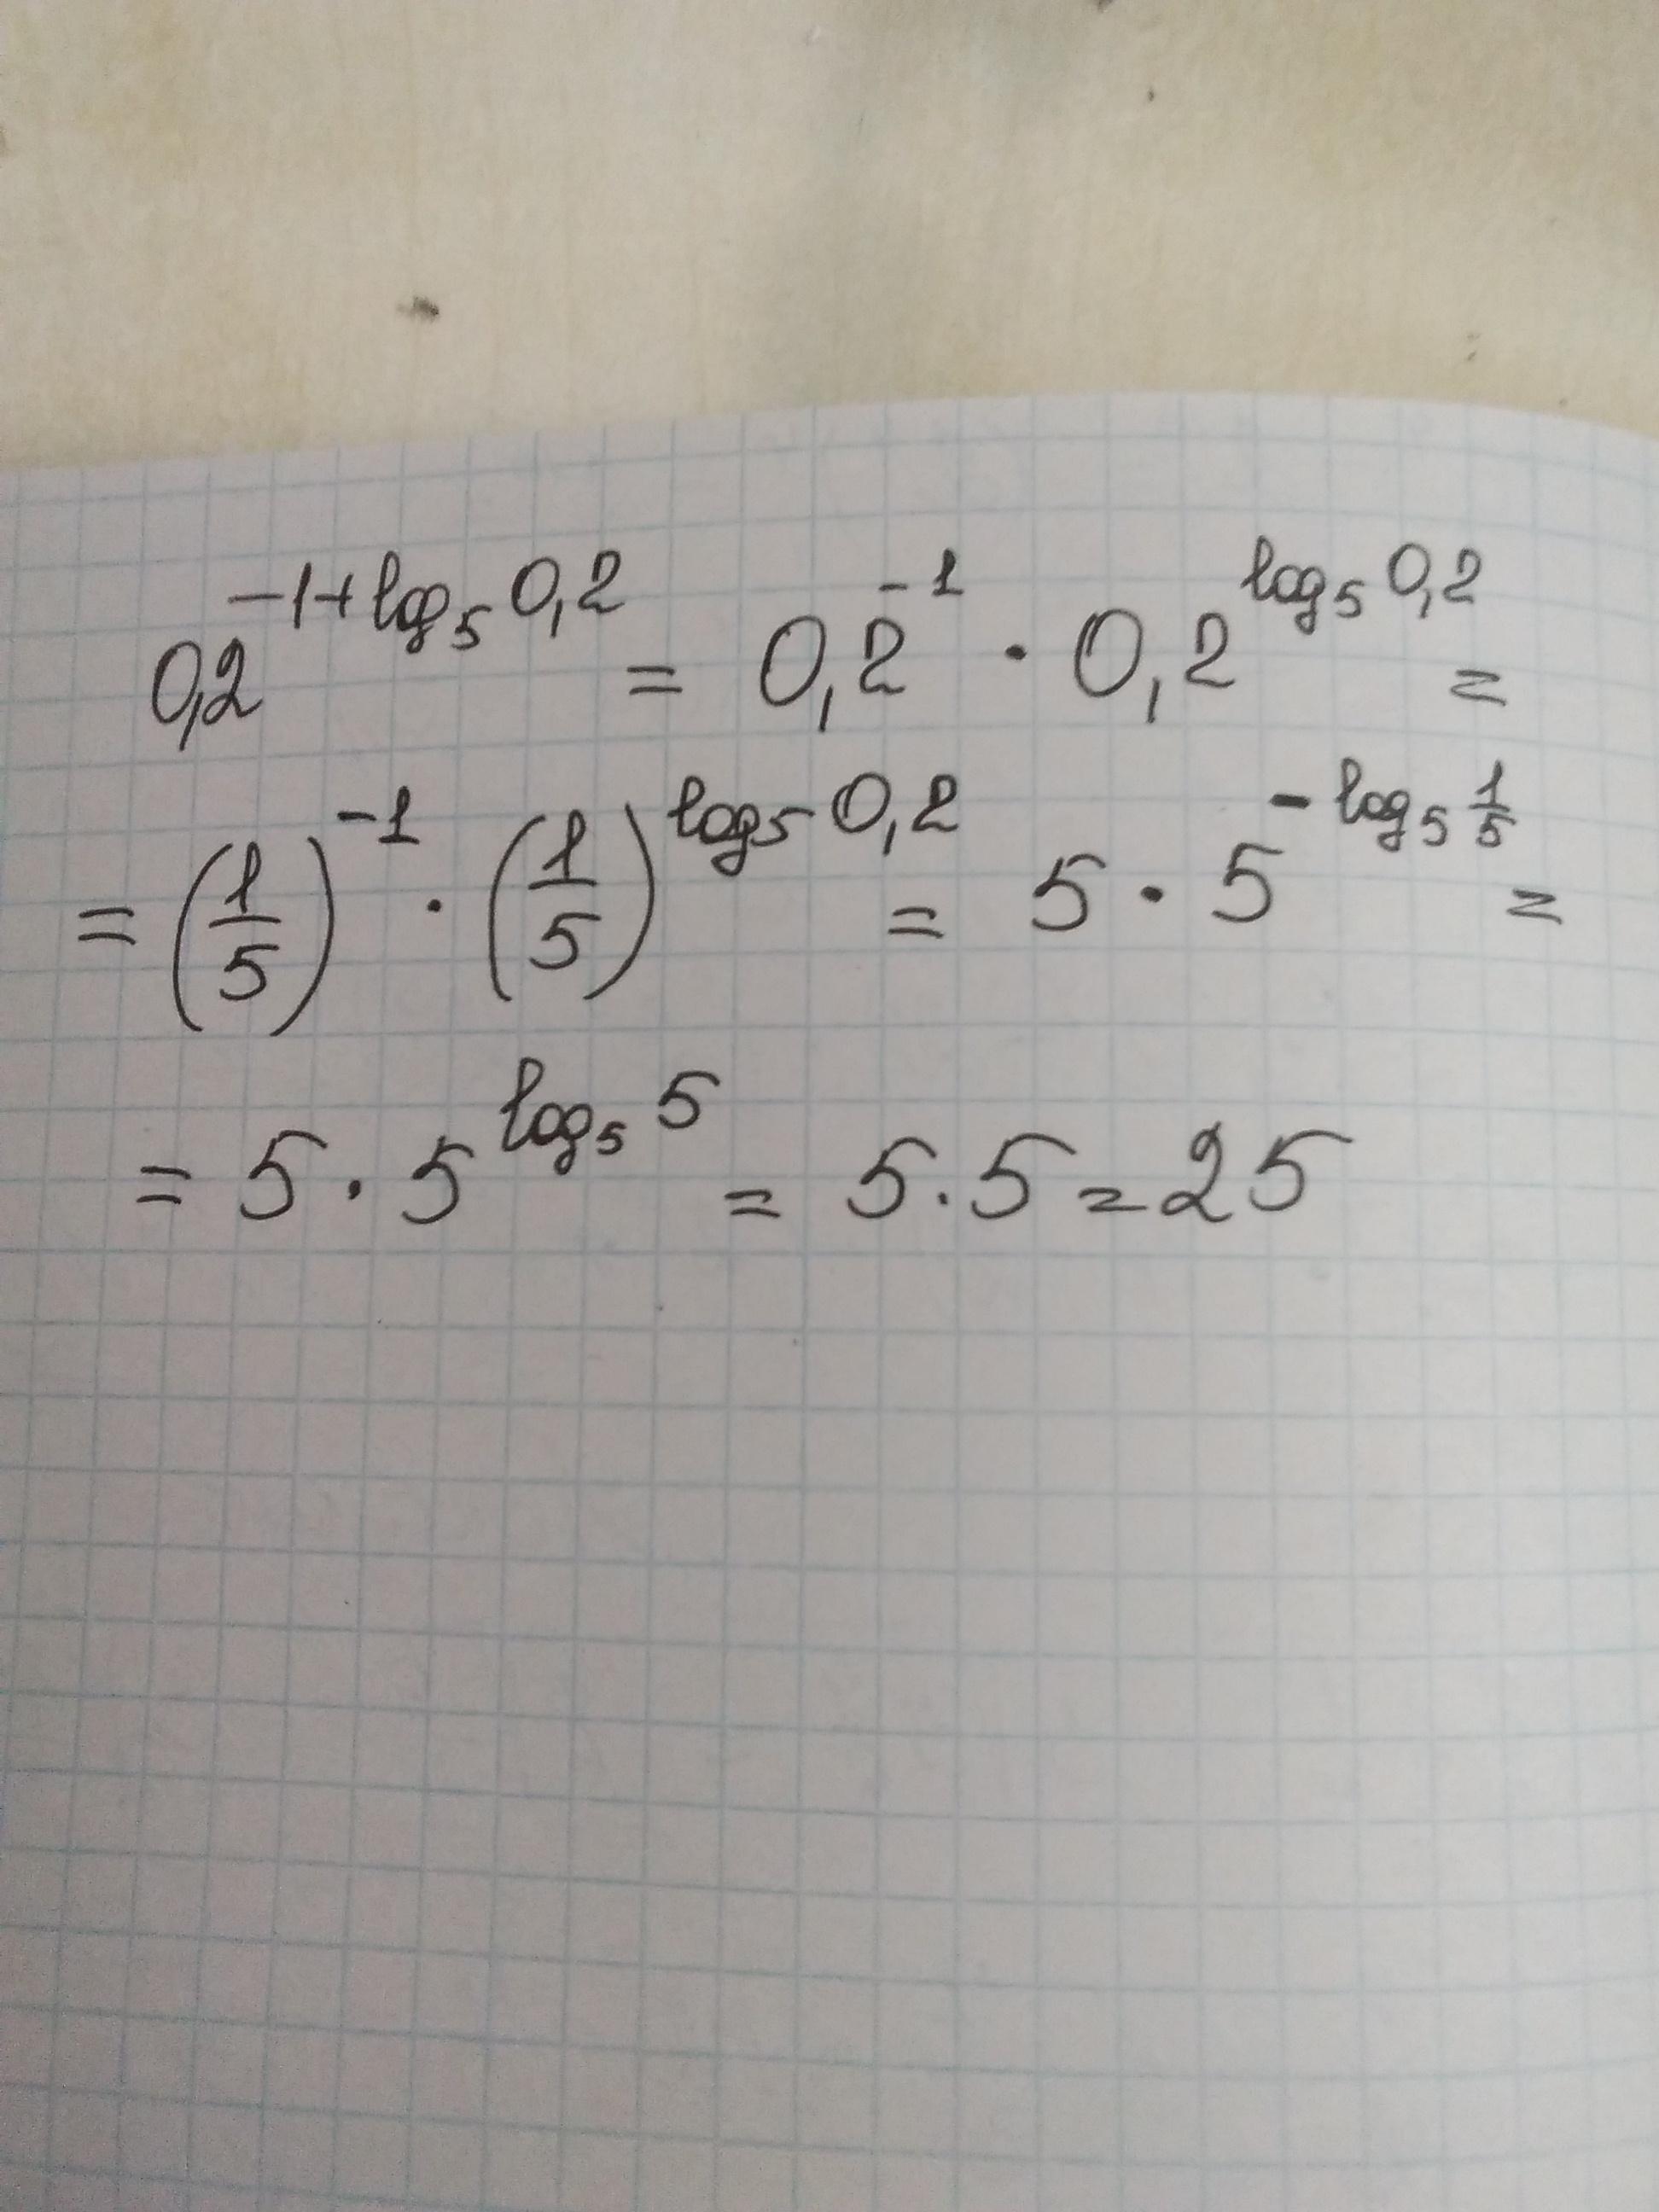 0,2^{-1+log_5 0,2} = 0,2^{-1} · 0,2^{log_5 0,2} =
= (1/5)^{-1} · (1/5)^{log_5 0,2} = 5 · 5^{-log_5 1/5} =
= 5 · 5^{log_5 5} = 5 · 5 = 25